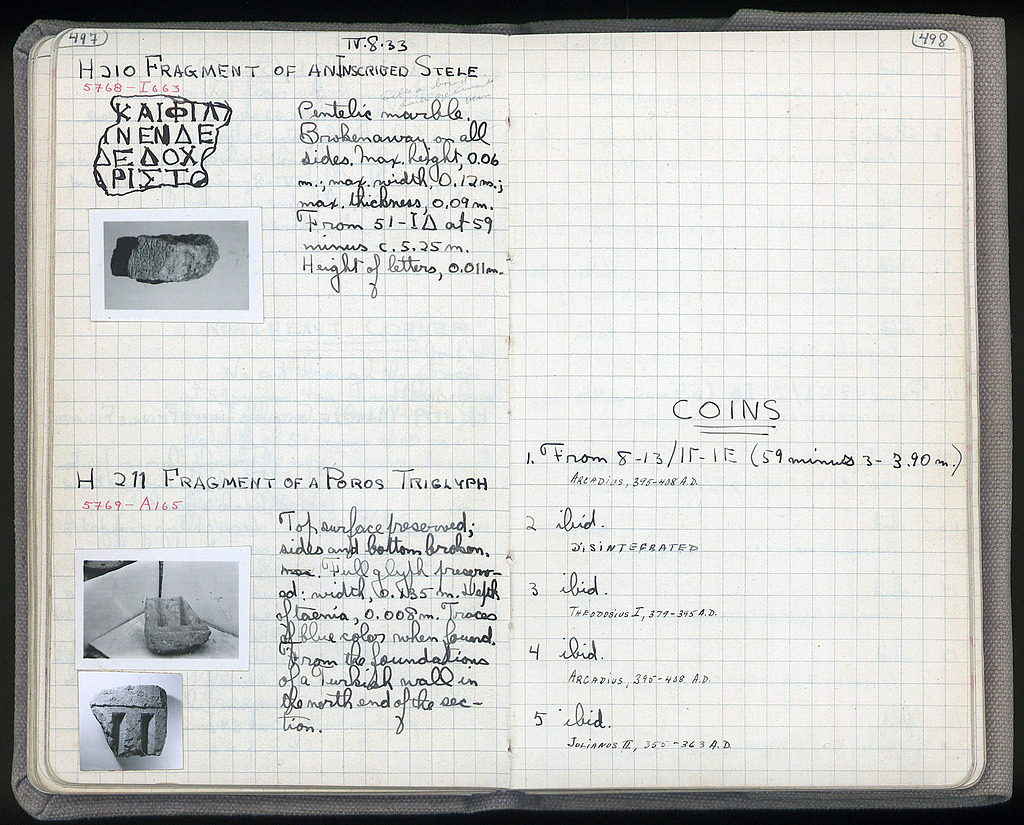 497
IV.8.33
H 210 FRAGMENT OF AN INSCRIBED STELE
5768-I663
ΚΑΙΦΙΛ
ΝΕΝΔΕ
ΔΕΔΟΧ
ΡΙΣΤΟ
Pentelic marble.
Broken away on all
sides. Max. height, 0.06
m.; max. width, 0.12 m.;
max. thickness, 0.09 m.
From 51-ΙΔ at 59
minus c. 5.25 m.
Height of letters, 0.011 m.
H 211 FRAGMENT OF A POROS TRIGLYPH
5769-A165
Top surface preserved;
sides and bottom broken.
max. Full glyph preserv-
ed: width, 0.135 m. Depth
of taenia, 0.008 m. Traces
of blue color when found.
From the foundations
of a Turkish wall in
the north end of the sec-
tion.
498
COINS
1. From 8-13/ΙΓ-ΙΕ (59 minus 3-3.90 m.)
ARCADIUS, 395-408 A.D.
2 ibid.
DISINTEGRATED
3 ibid.
THEODOSIUS I, 379-395 A.D.
4 ibid.
ARCADIUS, 395-408 A.D.
5 ibid.
JULIANUS II, 355-363 A.D.